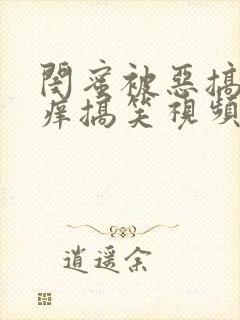 閨蜜被惡搞
痒搞笑視頻
逍遙余